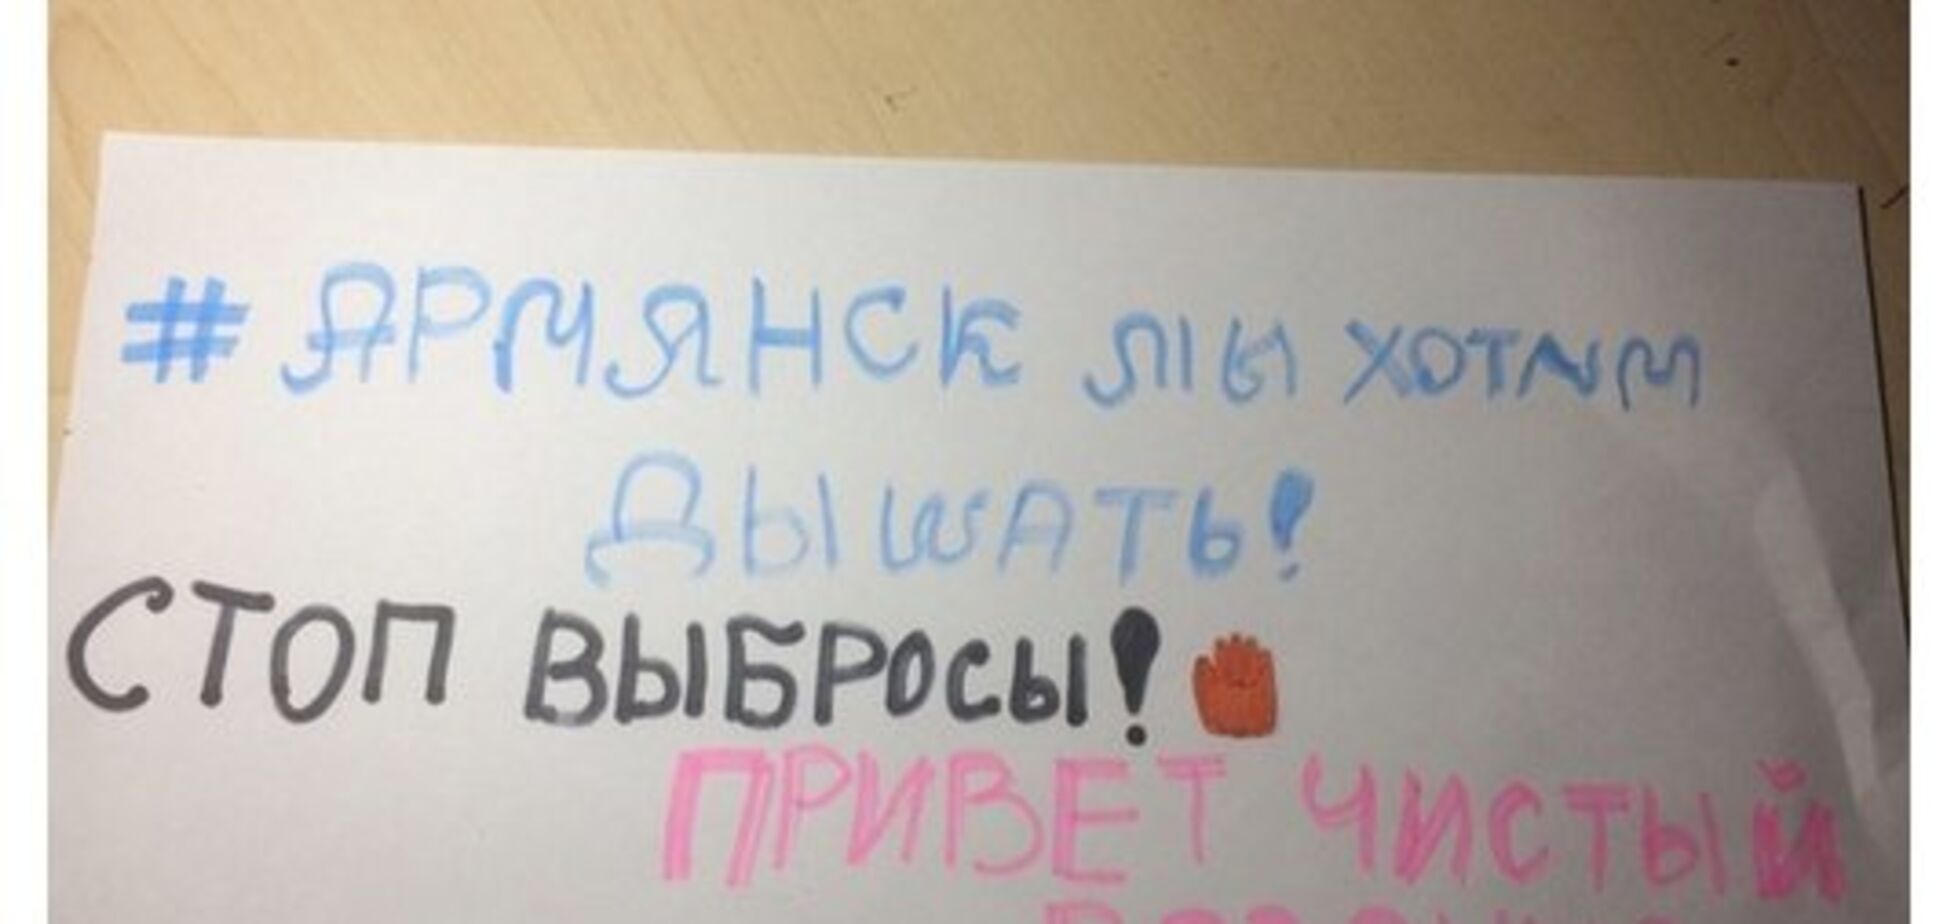 #АРМЯНСК МЫ ХОТИМ
ДЫШАТЬ!
СТОП ВЫБРОСЫ!
ПРИВЕТ ЧИСТЫЙ